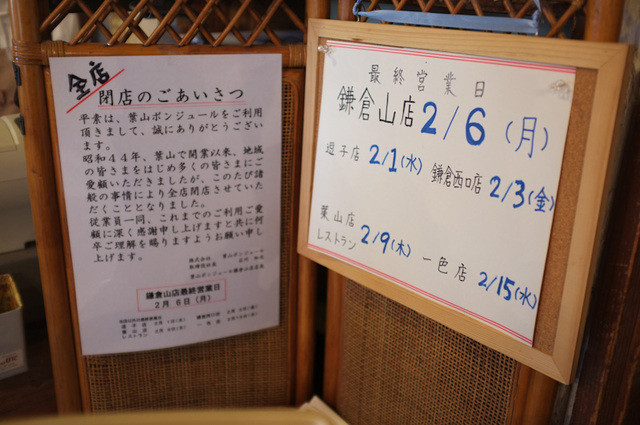 全店
閉店のごあいさつ
平素は、葉山ボンジュールをご利用
頂きまして、誠にありがとうござい
ます。
昭和44年、葉山で開業以来、地域
の皆さまをはじめ多くの皆さまにご
愛顧いただきましたが、このたび諸
般の事情により全店閉店させていた
だくこととなりました。
従業員一同、これまでのご利用ご愛
顧に深く感謝申し上げますと共に何
卒ご理解を賜りますようお願い申し
上げます。
株式会社 葉山ボンジュール
鎌倉山店最終営業日
2月 6日(月)
最終営業日
鎌倉山店 2/6(月)
逗子店 2/1(水) 鎌倉西口店 2/3(金)
葉山店
レストラン 2/9(木) 一色店 2/15(水)